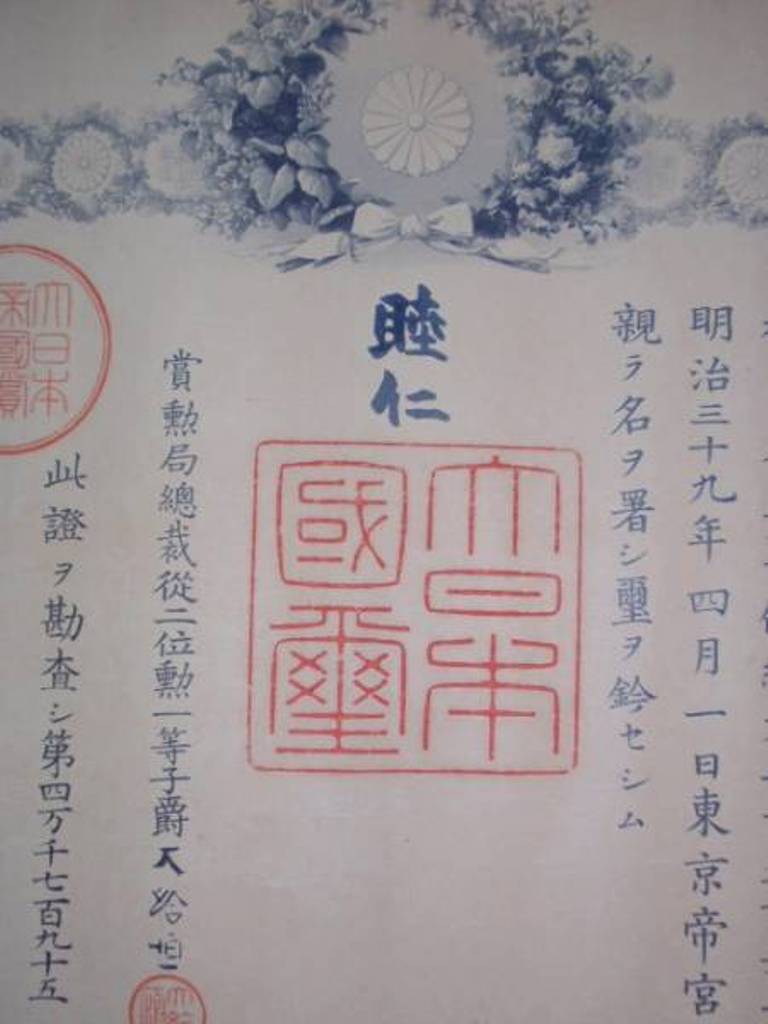 明治三十九年四月一日東京帝宮
親ラ名ヲ署シ璽ヲ鈐セシム
睦仁
大日本
國璽
賞勲局總裁從二位勲一等子爵大給恒
大日本
帝國賞
此證ヲ勘査シ第四万千七百九十五